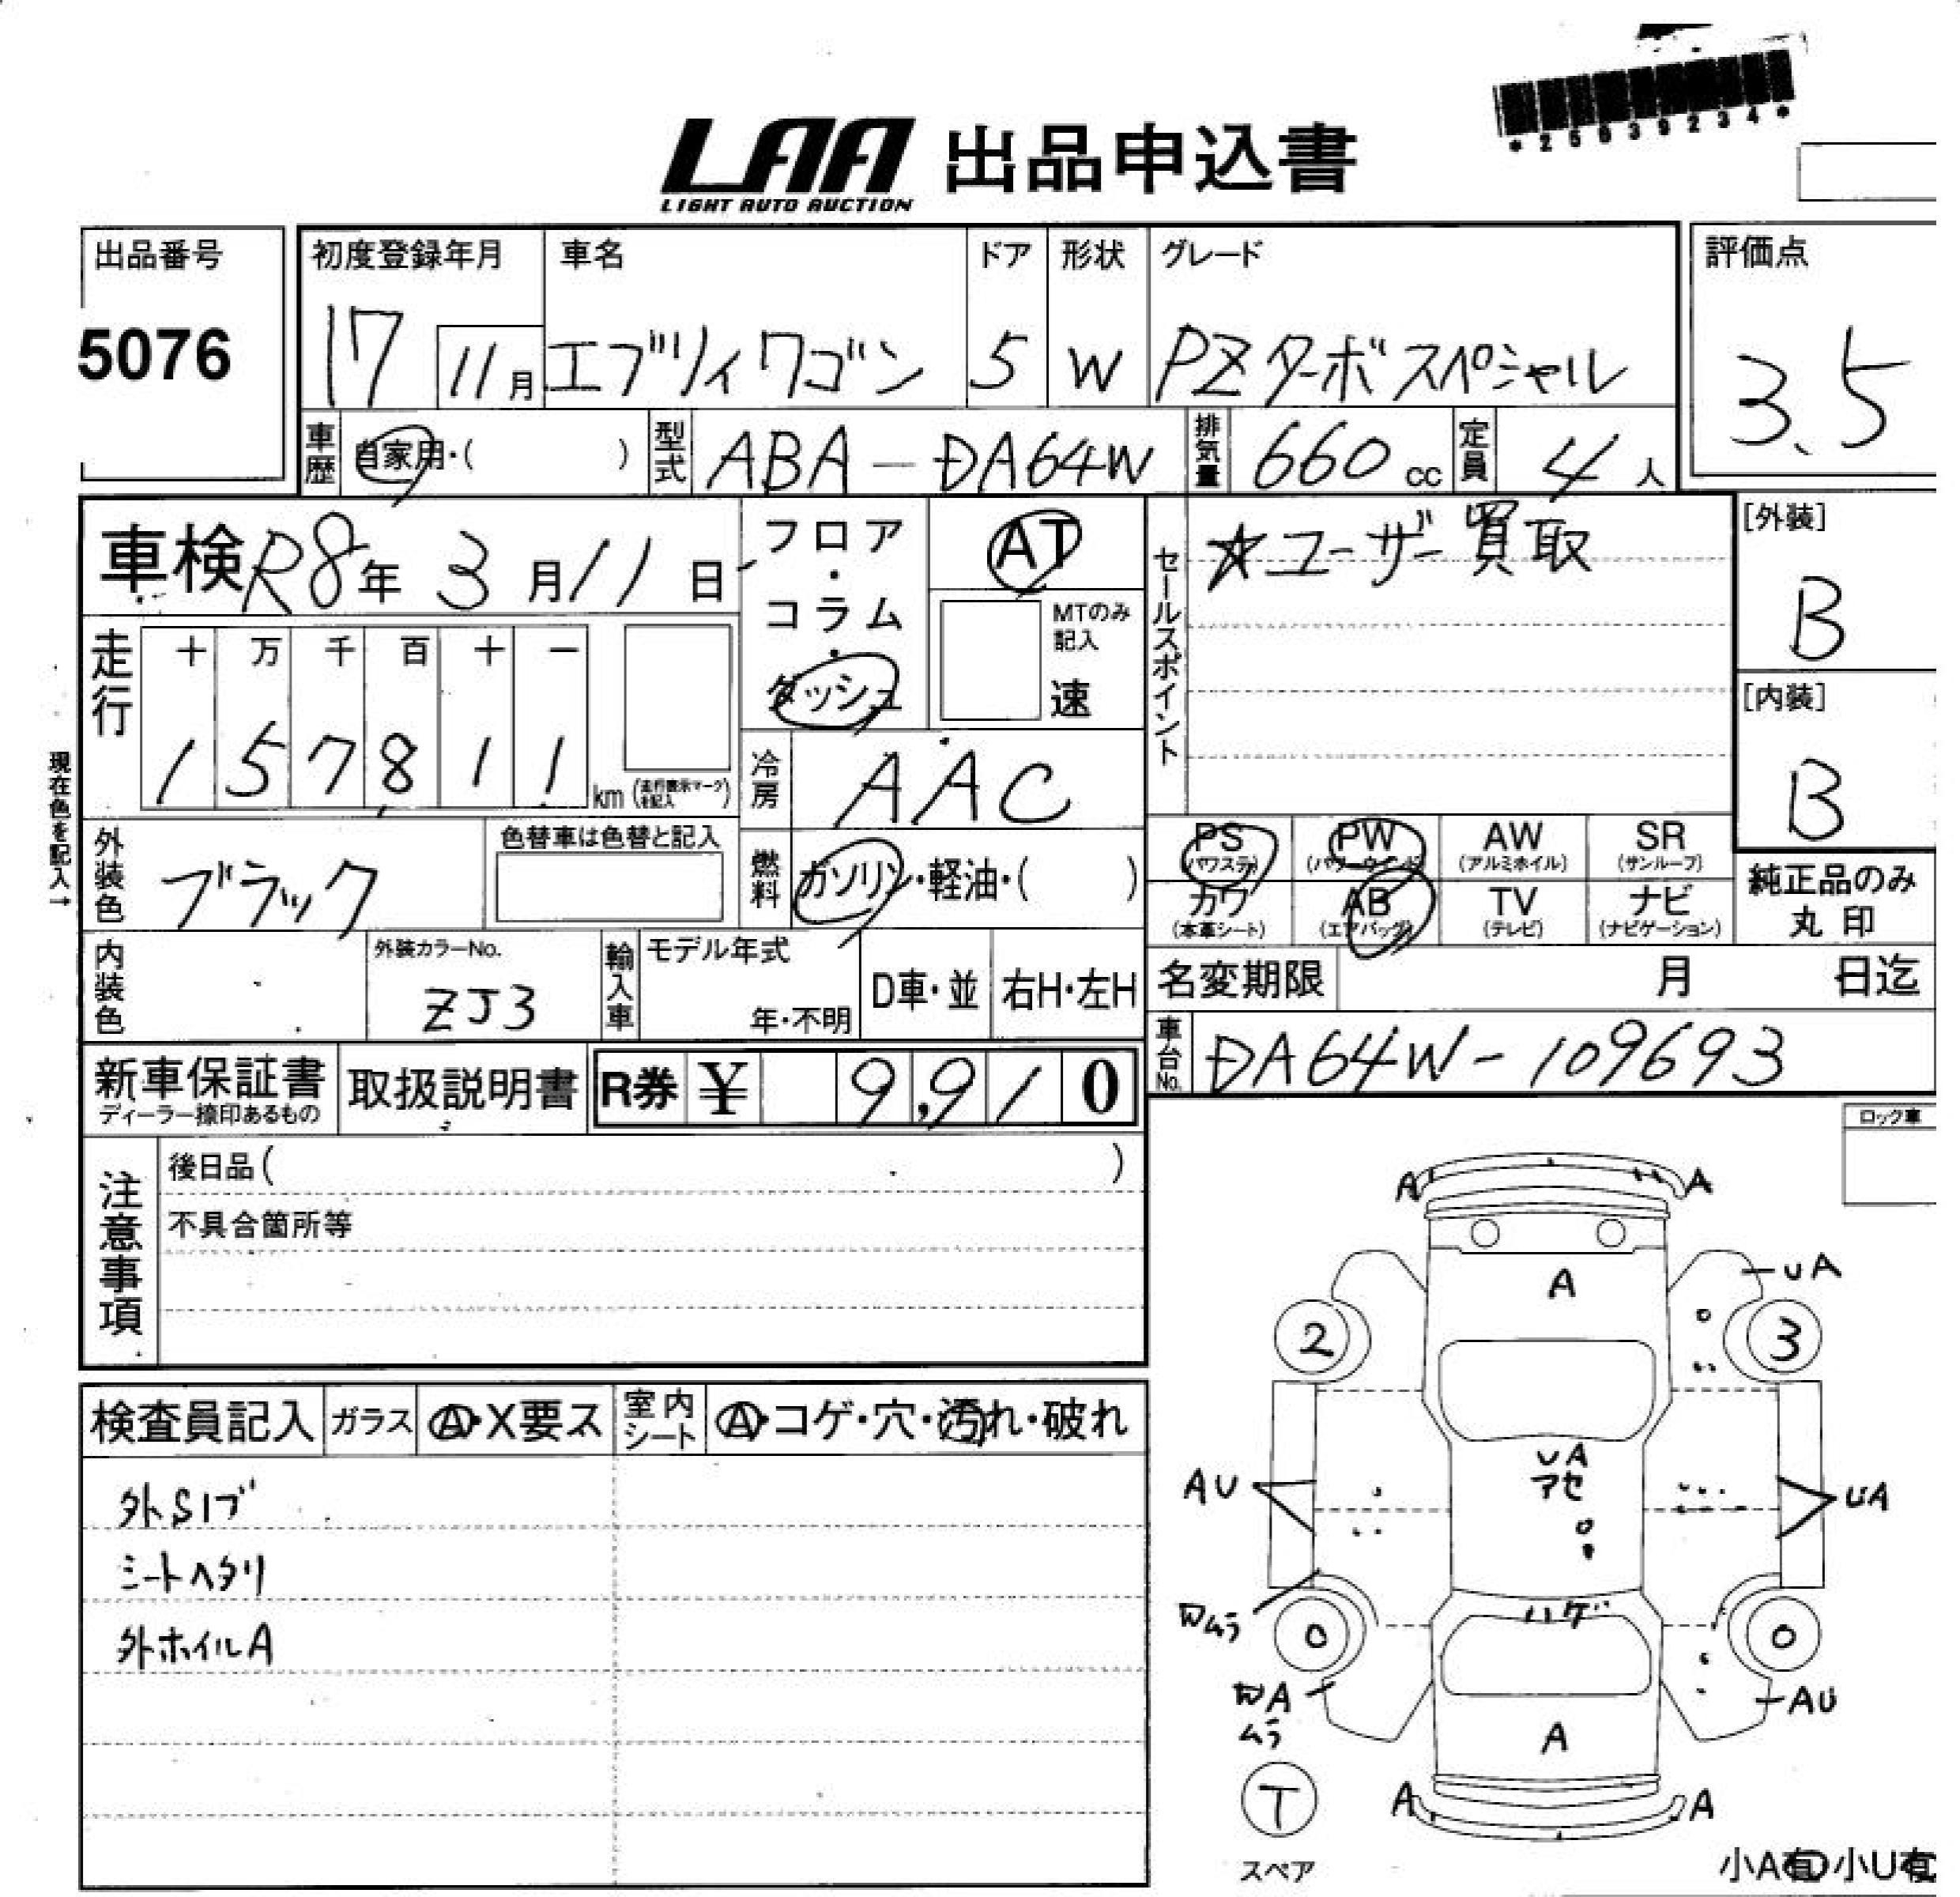 *25039234*
LAA 出品申込書
LIGHT AUTO AUCTION
出品番号
5076
初度登録年月
17 11月
車名
エブリィワゴン
ドア
5
形状
W
グレード
PZターボスペシャル
評価点
3.5
車歴 自家用・( )
型式 ABA-DA64W
排気量 660 cc
定員 4 人
車検 R8年 3月 11日
フロア・コラム・ダッシュ
AT
MTのみ記入
速
セールスポイント
☆ユーザー買取
[外装]
B
[内装]
B
走行
十 万 千 百 十 一
1 5 7 8 1 1 km (走行表示マークを記入)
冷房 AAC
現在色を記入→
外装色 ブラック
色替車は色替と記入
燃料 ガソリン・軽油・( )
PS (パワステ)
PW (パワーウインド)
AW (アルミホイル)
SR (サンルーフ)
カワ (本革シート)
AB (エアバッグ)
TV (テレビ)
ナビ (ナビゲーション)
純正品のみ
丸印
内装色
外装カラーNo.
ZJ3
輸入車
モデル年式
年・不明
D車・並
右H・左H
名変期限 月 日迄
車台No. DA64W-109693
新車保証書
ディーラー捺印あるもの
取扱説明書
R券 ¥ 9,910
注意事項
後日品( )
不具合箇所等
ロック車
検査員記入
ガラス A・X要ス
室内シート A・コゲ・穴・汚れ・破れ
外Sレブ
シートヘタリ
外ホイルA
A A
A
UA
2 3
UA
アセ
AU UA
ハゲ
ムラ
0 0
A
ムラ
AU
A
T
スペア
A A
小A有 小U有